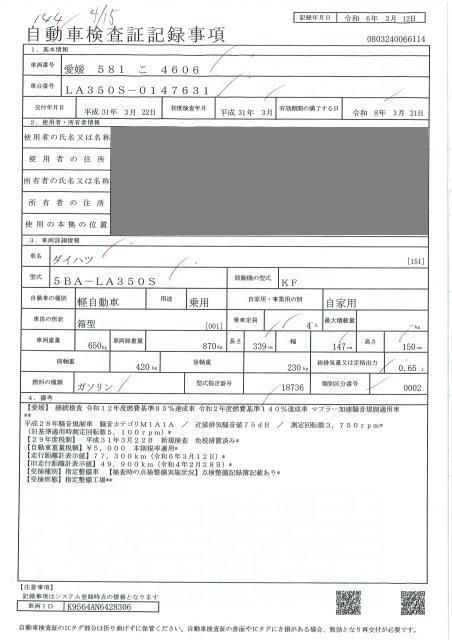 144 4/15
自動車検査証記録事項
記録年月日 令和 6年 3月 12日
0803240066114
1. 基本情報
車両番号 愛媛 581 こ 4606
車台番号 LA350S-0147631
交付年月日 平成 31年 3月 22日 初度検査年月 平成 31年 3月 有効期間の満了する日 令和 8年 3月 21日
2. 使用者・所有者情報
使用者の氏名又は名称
使用者の住所
所有者の氏名又は名称
所有者の住所
使用の本拠の位置
3. 車両詳細情報
車名 ダイハツ [151]
型式 5BA-LA350S 原動機の型式 KF
自動車の種別 軽自動車 用途 乗用 自家用・事業用の別 自家用
車体の形状 箱型 [001] 乗車定員 4人 最大積載量 -kg
車両重量 650kg 車両総重量 870kg 長さ 339cm 幅 147cm 高さ 150cm
前軸重 420kg 後軸重 230kg 総排気量又は定格出力 0.65 L
燃料の種類 ガソリン 型式指定番号 18736 類別区分番号 0002
4. 備考
【愛媛】 継続検査 令和12年度燃費基準85%達成車 令和2年度燃費基準140%達成車 マフラー加速騒音規制適用車
**
平成28年騒音規制車 騒音カテゴリM1A1A / 近接排気騒音値75dB / 測定回転数3,750rpm*
(旧基準適用時測定回転数5,100rpm)*
【29年度税制】 平成31年3月22日 新規検査 免税措置済み*
【自動車重量税額】¥5,000 本則税率適用*
【走行距離計表示値】77,300km(令和6年3月12日)*
【旧走行距離計表示値】49,900km(令和4年2月28日)*
【受検種別】指定整備車 【検査時の点検整備実施状況】点検整備記録簿記載あり*
【受検形態】指定整備工場**
【注意事項】
記録事項はシステム登録時点の情報となります
車両ID K9564AN6428306
自動車検査証のICタグ部分は折り曲げずに保管ください。自動車検査証の券面やICタグにき損がある場合、無効となり再交付が必要です。